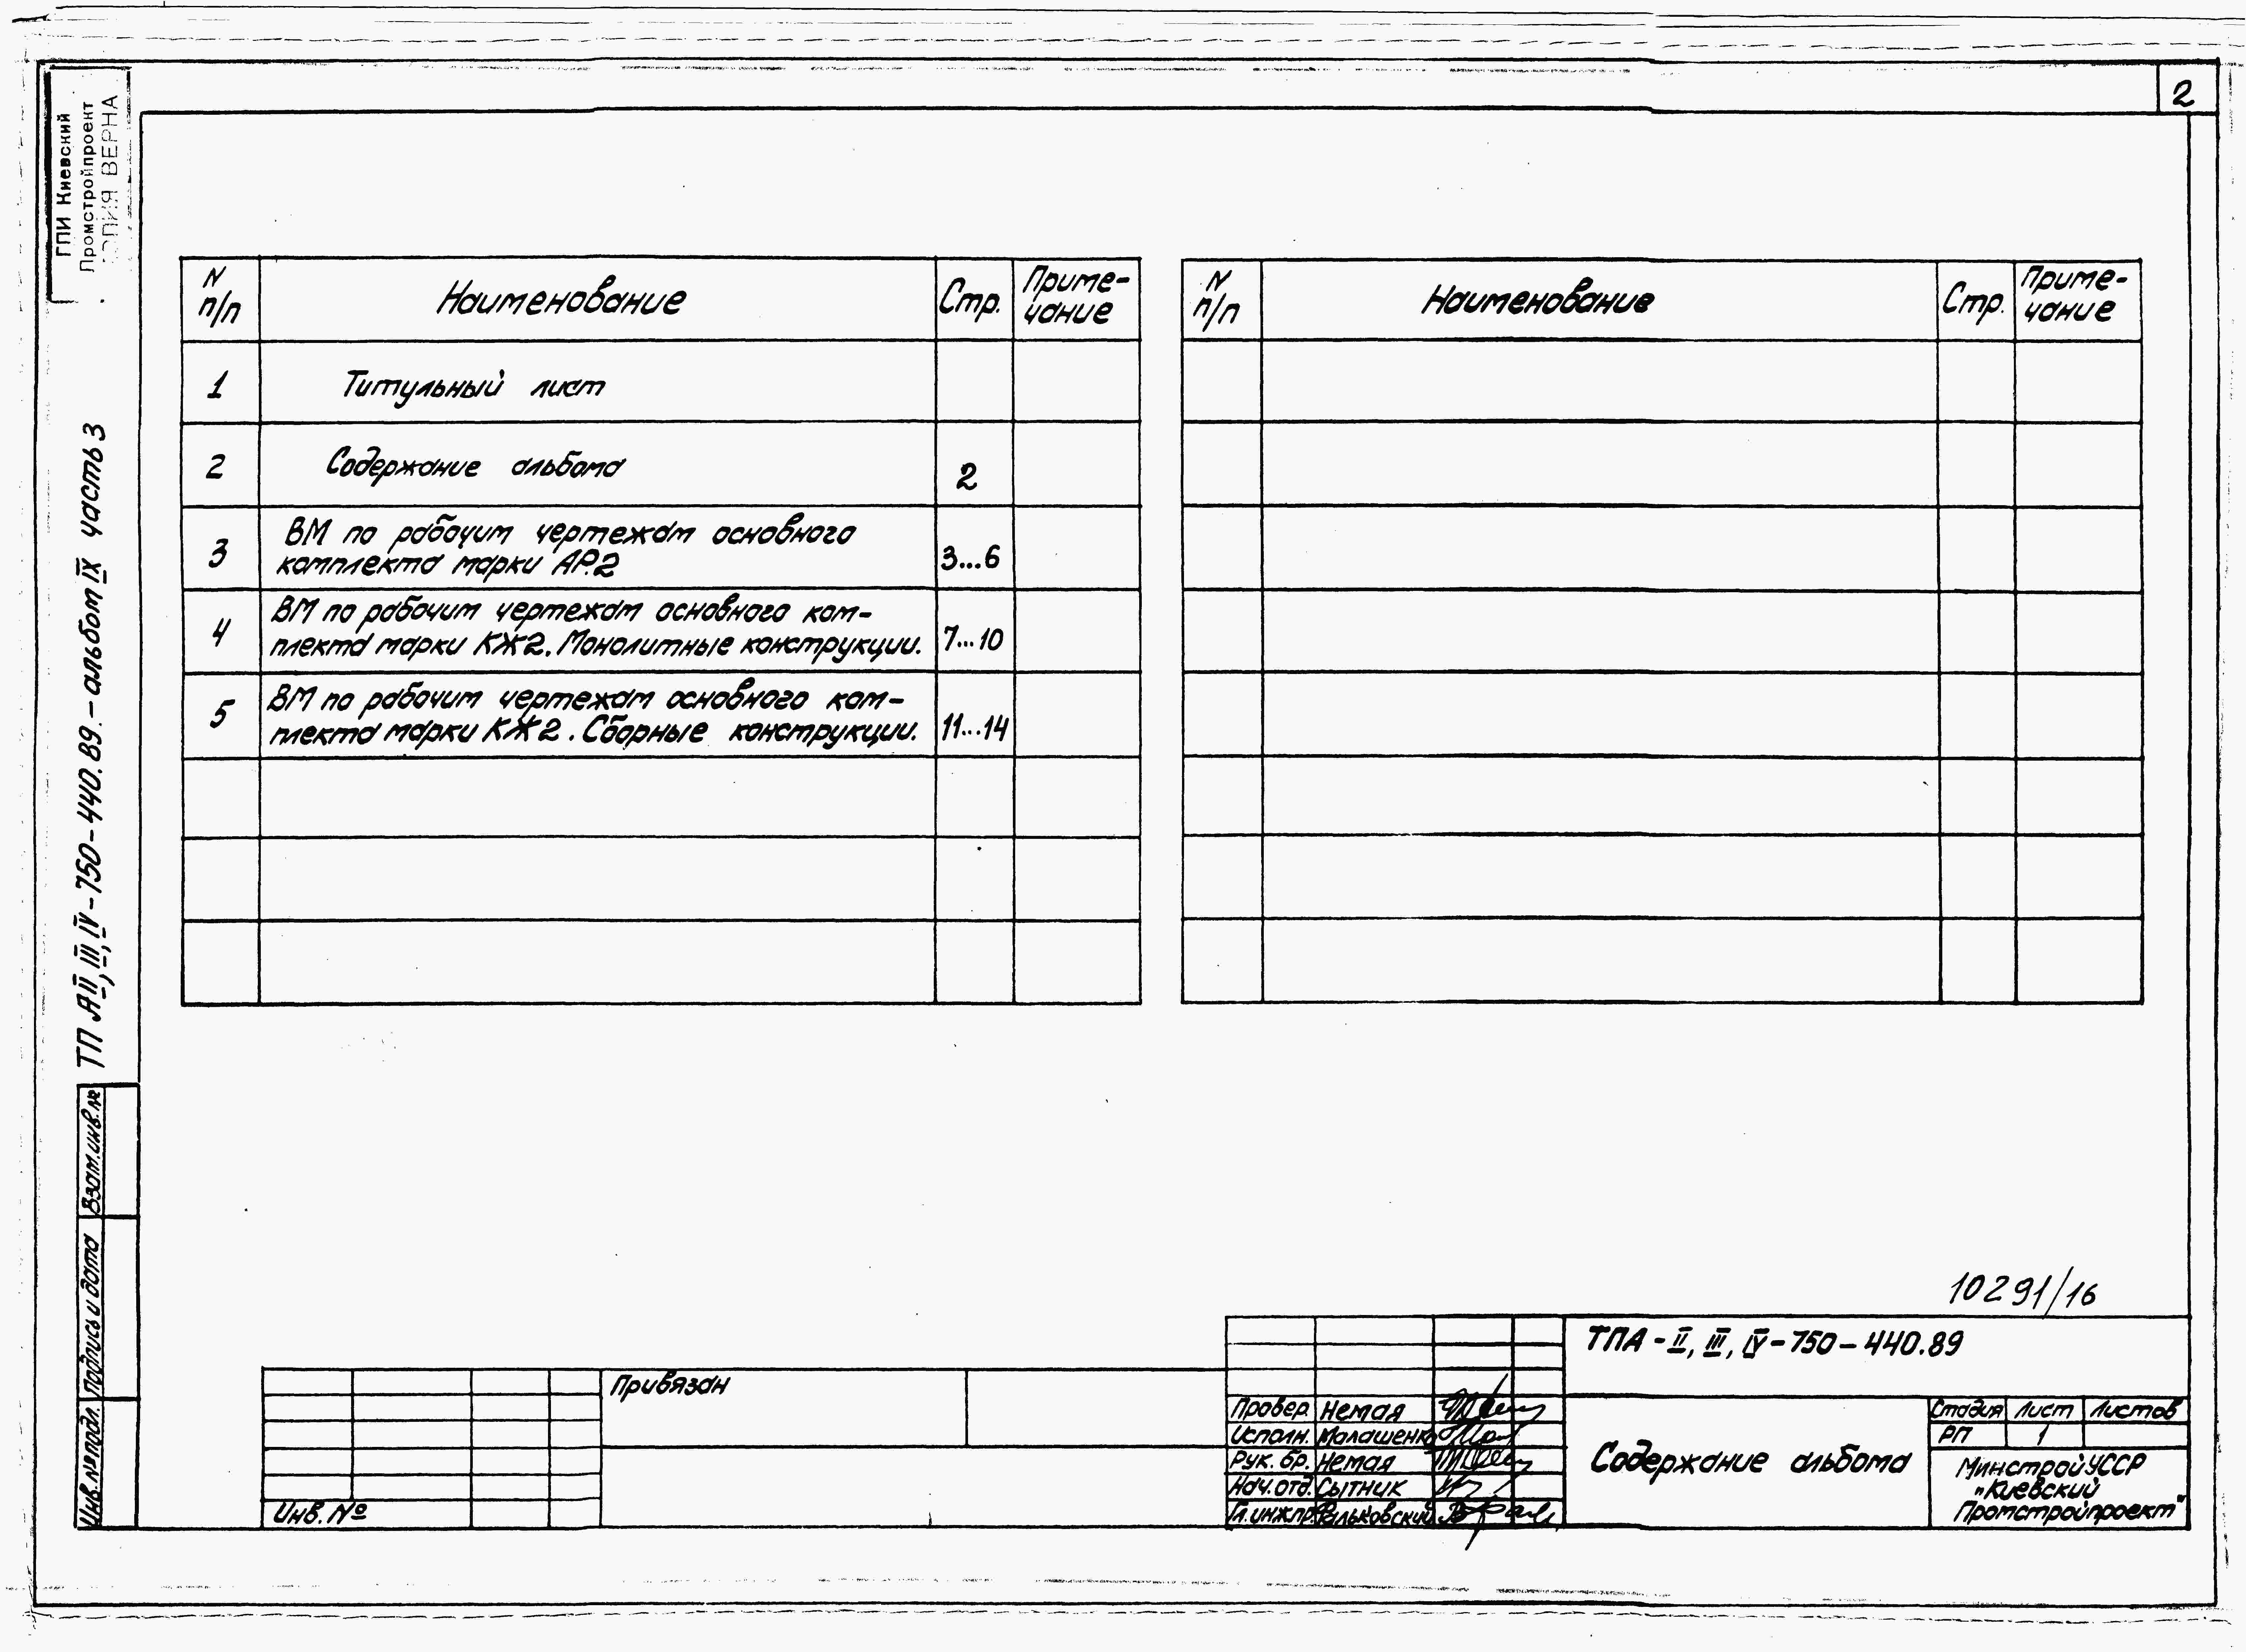 2
ГПИ Киевский
Промстройпроект
КОПИЯ ВЕРНА
ТП А II, III, IV - 750 - 440.89. - альбом IX часть 3
N п/п Наименование Стр. Приме-
чание
1 Титульный лист
2 Содержание альбома 2
3 ВМ по рабочим чертежам основного
комплекта марки АР.2 3...6
4 ВМ по рабочим чертежам основного ком-
плекта марки КЖ2. Монолитные конструкции. 7...10
5 ВМ по рабочим чертежам основного ком-
плекта марки КЖ2. Сборные конструкции. 11...14
N п/п Наименование Стр. Приме-
чание
Взам.инв.№
Подпись и дата
Инв.№ подл.
10291/16
Привязан
Инв. №
ТПА - II, III, IV - 750 - 440.89
Провер. Немая
Исполн. Малашенко
Рук. бр. Немая
Нач.отд. Сытник
Гл.инж.пр. Фальковский
Содержание альбома
Стадия Лист Листов
РП 1
Минстрой УССР
"Киевский
Промстройпроект"